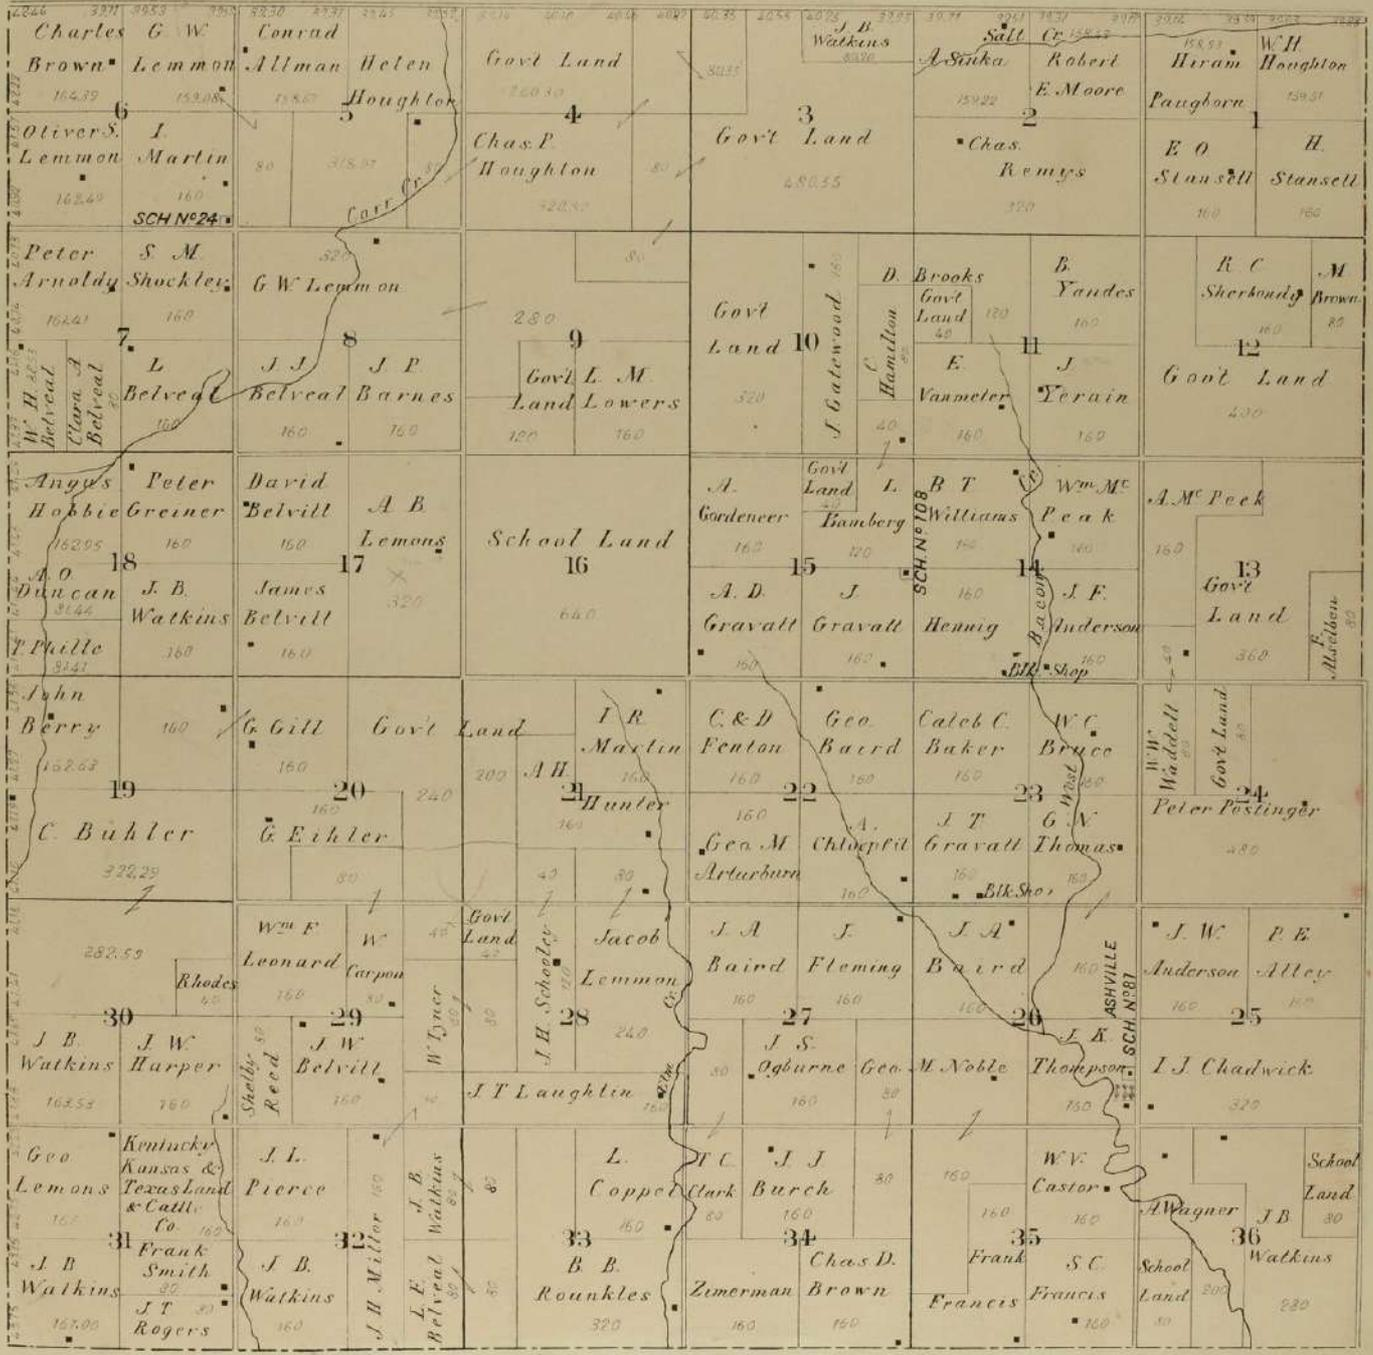 Charles
Brown
164.39
G. W.
Lemmon
159.08
6
Oliver S.
Lemmon
162.40
I.
Martin
160
SCH Nº 24
Conrad
Allman
Helen
Houghton
5
80
318.97
80
Carr Cr.
Govt Land
4
Chas. P.
Houghton
80
J. B.
Watkins
80.35
3
Gov't Land
480.55
Salt Cr.
A Sinka
159.22
Robert
E. Moore
2
Chas.
Remys
320
158.53
Hiram
Paugborn
W. H.
Houghton
159.51
1
E O
Stansell
160
H.
Stansell
160
Peter
Arnoldy
162.41
S. M.
Shockley
160
7
W. H.
Belveal
Clara A
Belveal
80
L
Belveal
160
320
G. W. Lemmon
8
J J
Belveal
160
J P.
Barnes
160
80
280
9
Govt
Land
120
L. M.
Lowers
160
Govt
Land
10
320
J. Gatewood
160
D. Brooks
C.
Hamilton
80
40
Govt
Land
40
120
B.
Yandes
160
11
E.
Vanmeter
160
J
Yerain
160
R C
Sherbondy
160
M
Brown
80
12
Gov't Land
400
Angus
Hobbie
162.95
Peter
Greiner
160
18
A. O.
Duncan
81.44
P. Phille
81.41
J. B.
Watkins
160
David
Belvill
160
A B
Lemons
17
320
James
Belvill
160
School Land
16
640
A.
Gordeneer
160
Gov't
Land
40
L
Bamberg
120
15
A. D.
Gravatt
160
J.
Gravatt
160
SCH. Nº 108
B T
Williams
160
Cr.
Wm Mc
Peak
160
14
160
Hennig
Bacon
J. F.
Anderson
160
Blk. Shop
A. Mc Peek
160
13
Gov't
Land
360
40
F.
Alselben
80
John
Berry
162.63
160
19
C. Buhler
322.29
G. Gill
160
Gov't Land
20
240
160
G. Eihler
80
200
I R.
Martin
160
A H.
Hunter
21
160
40
80
C. & D
Fenton
160
Geo.
Baird
160
22
160
Geo. M
Arturburn
A.
160
Caleb C.
Baker
160
W C.
Bruce
160
23
West
J T
Gravatt
160
G. N.
Thomas
160
Blk Sho.
W. W.
Waddell
80
Govt Land
80
24
Peter Pestinger
480
282.59
Rhodes
40
30
J B.
Watkins
163.53
J. W.
Harper
160
Wm F
Leonard
160
W
Carpon
80
40
29
Shelby
Reed
80
J W
Belvill
160
W Tyner
80
40
Govt
Land
40
80
J. H. Schooley
120
Jacob
Lemmon
240
28
Cr.
Elm
J. T Laughlin
160
J. A
Baird
160
J.
Fleming
160
27
80
J. S.
Ogburne
160
Geo.
80
J. A
Baird
160
160
26
M. Noble
J. K.
Thompson
160
ASHVILLE
SCH. Nº 81
J. W.
Anderson
160
P. E.
Alley
160
25
I J. Chadwick
320
Geo
Lemons
Kentucky
Kansas &
Texas Land
& Cattle
Co.
160
31
J B
Watkins
Frank
Smith
80
J T
Rogers
80
J. L.
Pierce
160
32
J. B.
Watkins
160
J H Miller
160
J. B.
Watkins
80
L. E.
Belveal
80
80
80
L.
Coppel
160
33
B. B.
Rounkles
320
T C.
Clark
80
J J
Burch
160
80
34
Zimerman
160
Chas D.
Brown
160
160
160
W. V.
Castor
160
35
Frank
Francis
S C.
Francis
160
A. Wagner
School
Land
80
36
J B
Watkins
280
School
Land
80
200